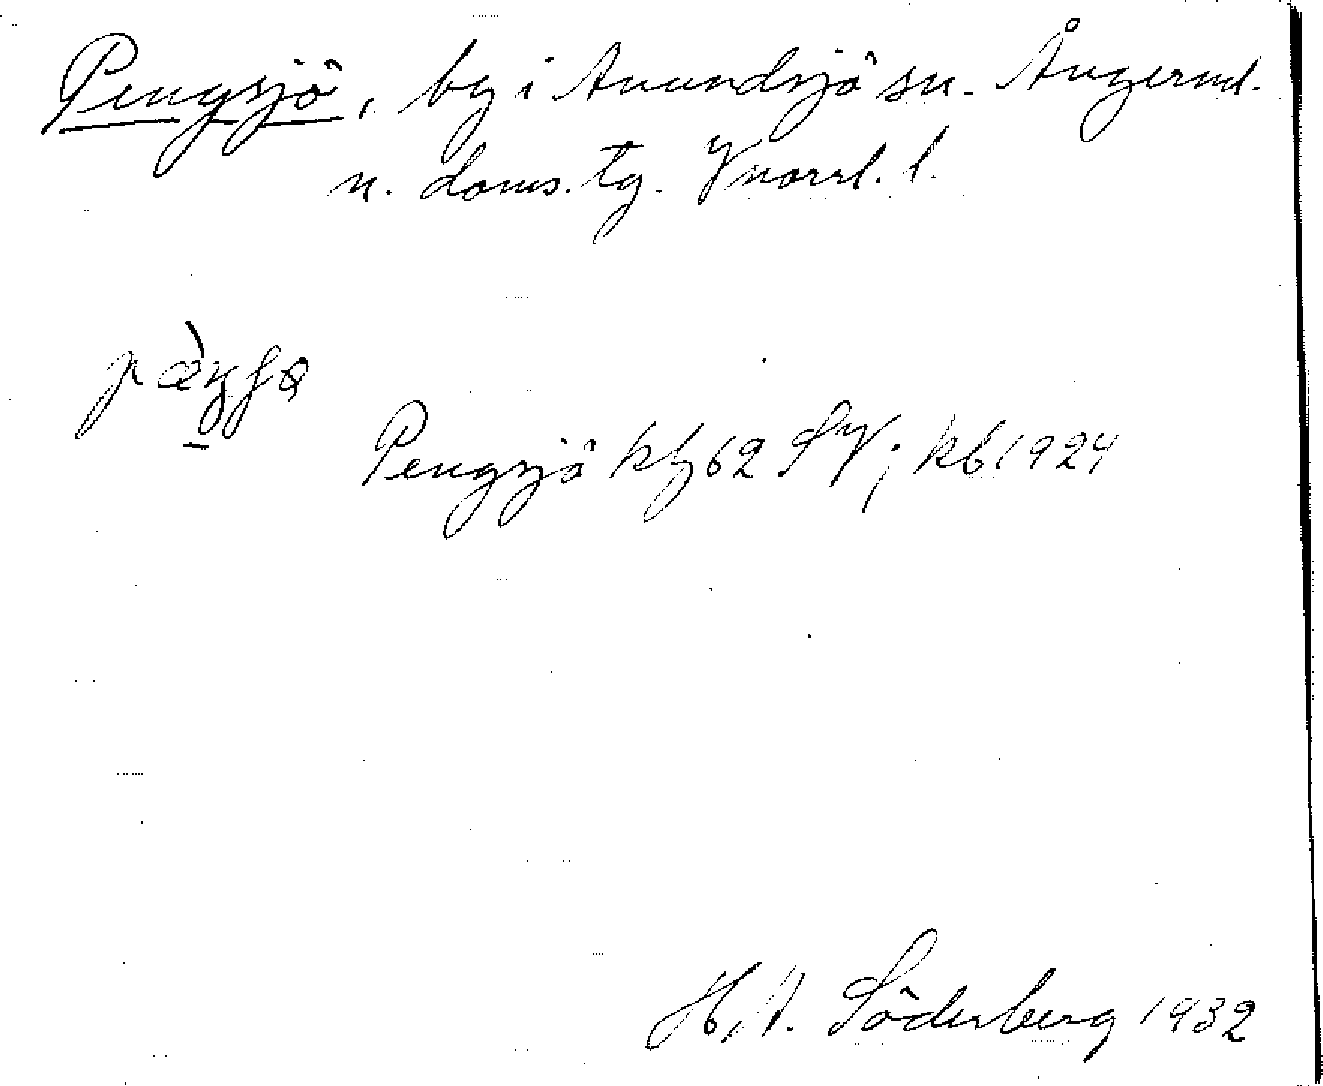 Pengsjö, by i Anundsjö sn. Ångermd.
n. doms. tg. Vnorrl. l.
Pengsjö kbl 62 SV; kb 1924
H. A. Söderberg 1932